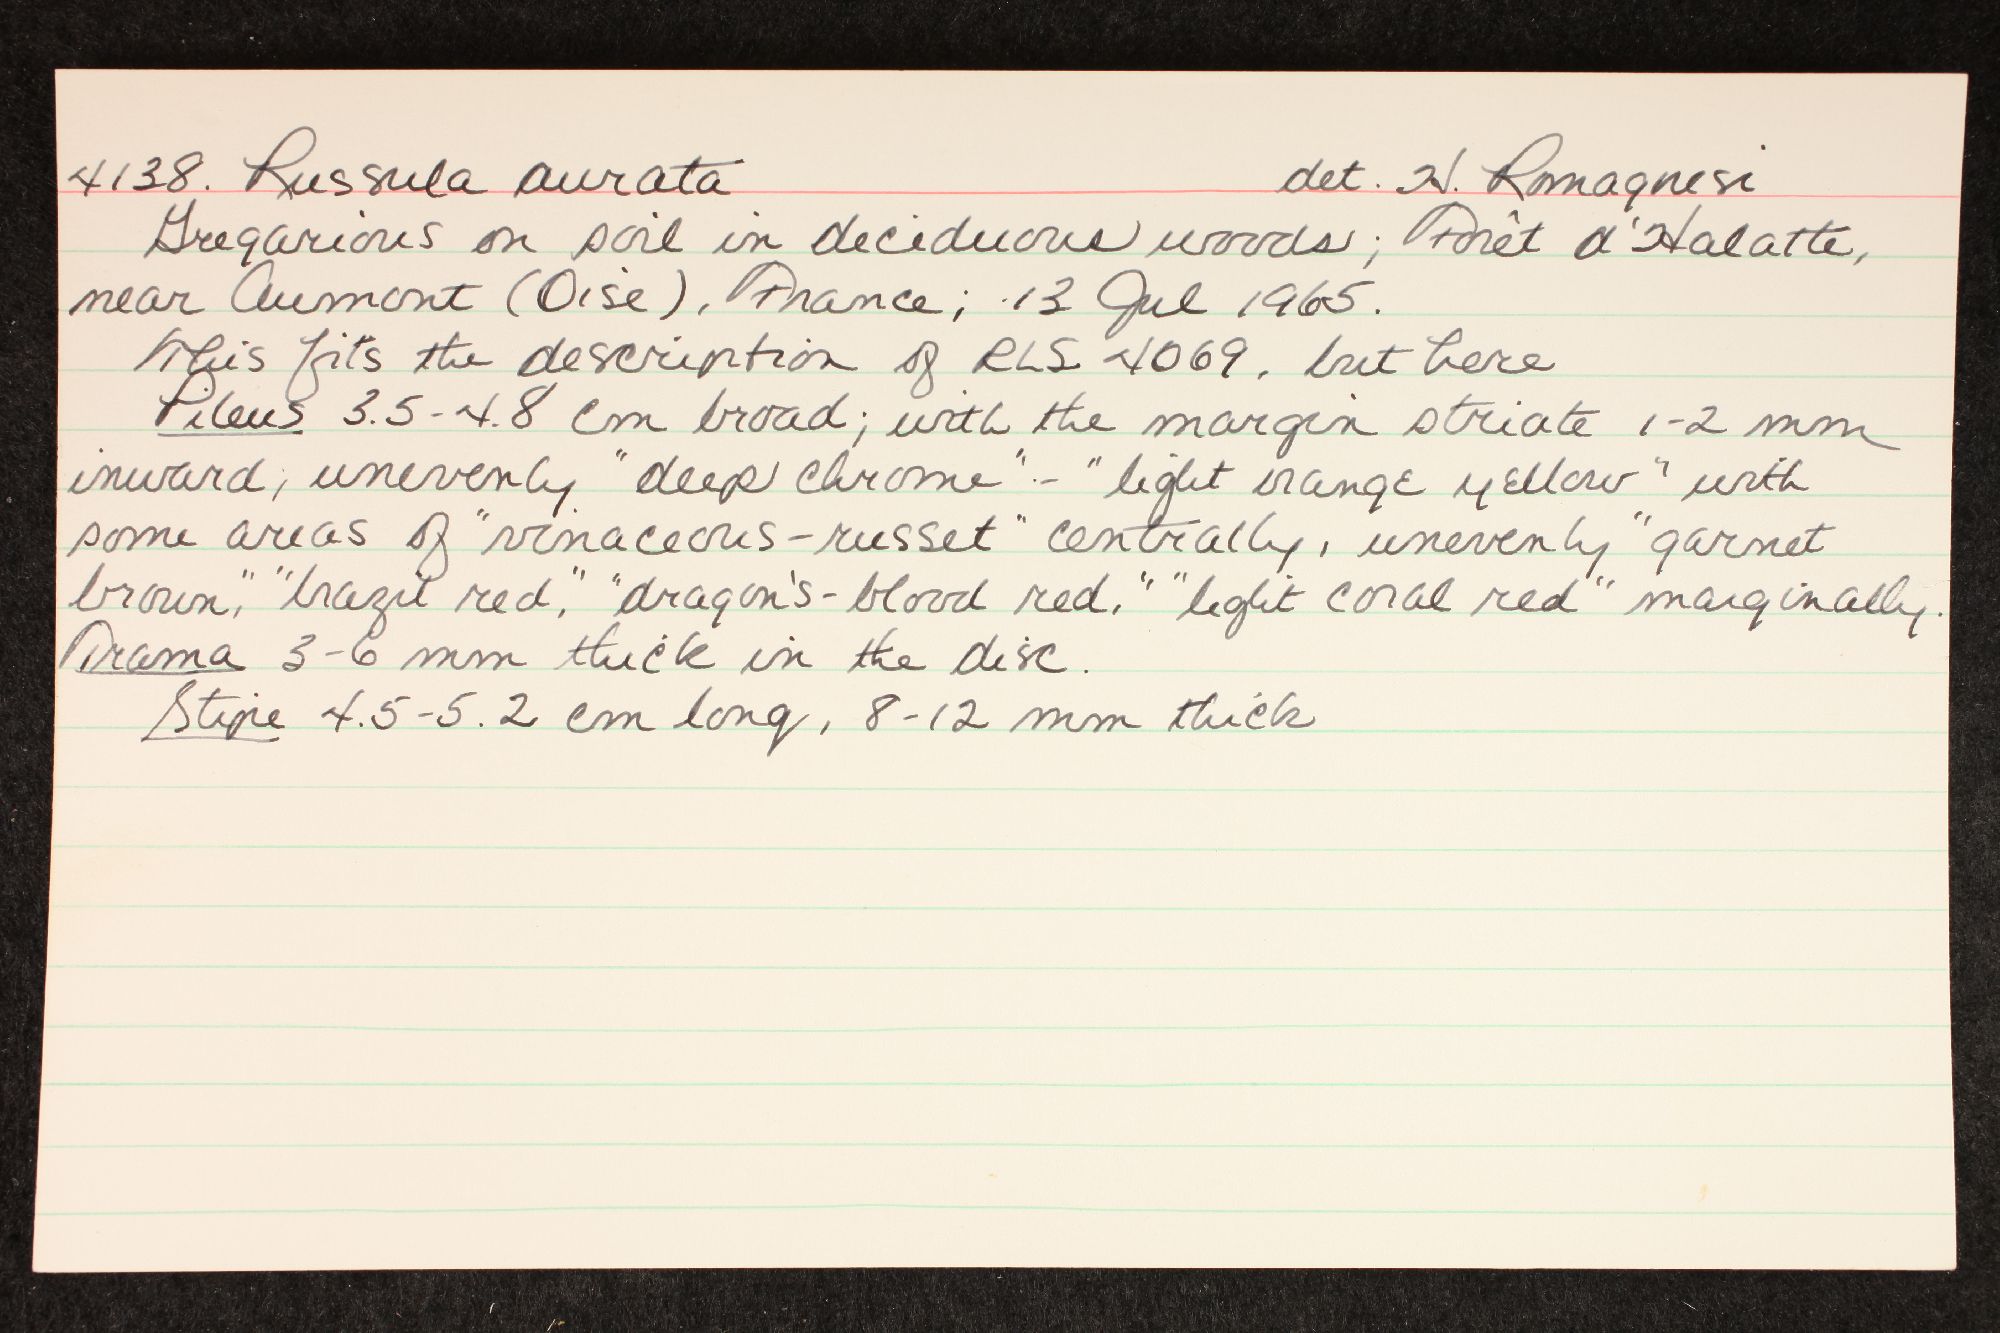 4138. Russula aurata det. H. Romagnesi
Gregarious on soil in deciduous woods; Forêt d'Halatte,
near Aumont (Oise), France; 13 Jul 1965.
This fits the description of RLS 4069, but here
Pileus 3.5-4.8 cm broad; with the margin striate 1-2 mm
inward; unevenly "deep chrome" - "light orange yellow" with
some areas of "vinaceous-russet" centrally, unevenly "garnet
brown," "brazil red," "dragon's-blood red," "light coral red" marginally.
Trama 3-6 mm thick in the disc.
Stipe 4.5-5.2 cm long, 8-12 mm thick